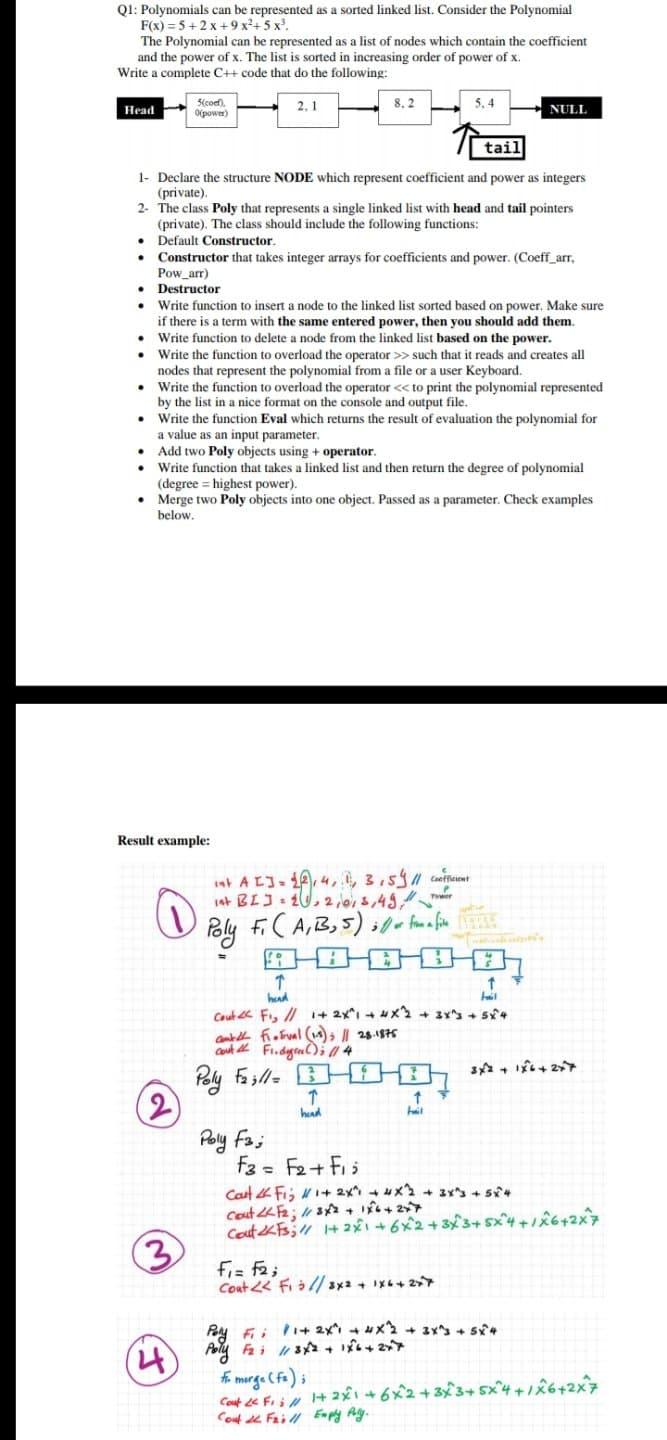 Q1: Polynomials can be represented as a sorted linked list. Consider the Polynomial
F(x) = 5 + 2 x + 9 x²+ 5 x³.
The Polynomial can be represented as a list of nodes which contain the coefficient
and the power of x. The list is sorted in increasing order of power of x.
Write a complete C++ code that do the following:
Head
5(coef),
0(power)
2, 1
8, 2
5, 4
NULL
tail
1- Declare the structure NODE which represent coefficient and power as integers
(private).
2- The class Poly that represents a single linked list with head and tail pointers
(private). The class should include the following functions:
• Default Constructor.
• Constructor that takes integer arrays for coefficients and power. (Coeff_arr,
Pow_arr)
• Destructor
• Write function to insert a node to the linked list sorted based on power. Make sure
if there is a term with the same entered power, then you should add them.
• Write function to delete a node from the linked list based on the power.
• Write the function to overload the operator >> such that it reads and creates all
nodes that represent the polynomial from a file or a user Keyboard.
• Write the function to overload the operator << to print the polynomial represented
by the list in a nice format on the console and output file.
• Write the function Eval which returns the result of evaluation the polynomial for
a value as an input parameter.
• Add two Poly objects using + operator.
• Write function that takes a linked list and then return the degree of polynomial
(degree = highest power).
• Merge two Poly objects into one object. Passed as a parameter. Check examples
below.
Result example:
1
int A[]= {2,4,1,3,5} // Coefficient
int B[] = {1,2,0,3,4}, // Power
Poly F1 ( A,B,5) ; // or from a file
head
tail
Cout << F1; // 1+ 2x^1 + 4x^2 + 3x^3 + 5x^4
cout << F1.Eval (1.5) ; // 28.1875
cout << F1.degree(); // 4
2
Poly F2 ; //=
3x^2 + 1x^6 + 2x^7
head
tail
3
Poly F3;
F3 = F2+F1 ;
Cout << F1; // 1+ 2x^1 + 4x^2 + 3x^3 + 5x^4
Cout << F2; // 3x^2 + 1x^6 + 2x^7
Cout << F3; // 1+ 2x^1 + 6x^2 + 3x^3 + 5x^4 + 1x^6 + 2x^7
F1= F2 ;
Cout << F1 ; // 3x2 + 1x6 + 2x^7
4
Poly F1 ; // 1+ 2x^1 + 4x^2 + 3x^3 + 5x^4
Poly F2 ; // 3x^2 + 1x^6 + 2x^7
F1. merge (F2) ;
Cout << F1 ; // 1+ 2x^1 + 6x^2 + 3x^3 + 5x^4 + 1x^6 + 2x^7
Cout << F2 ; // Empty Poly.